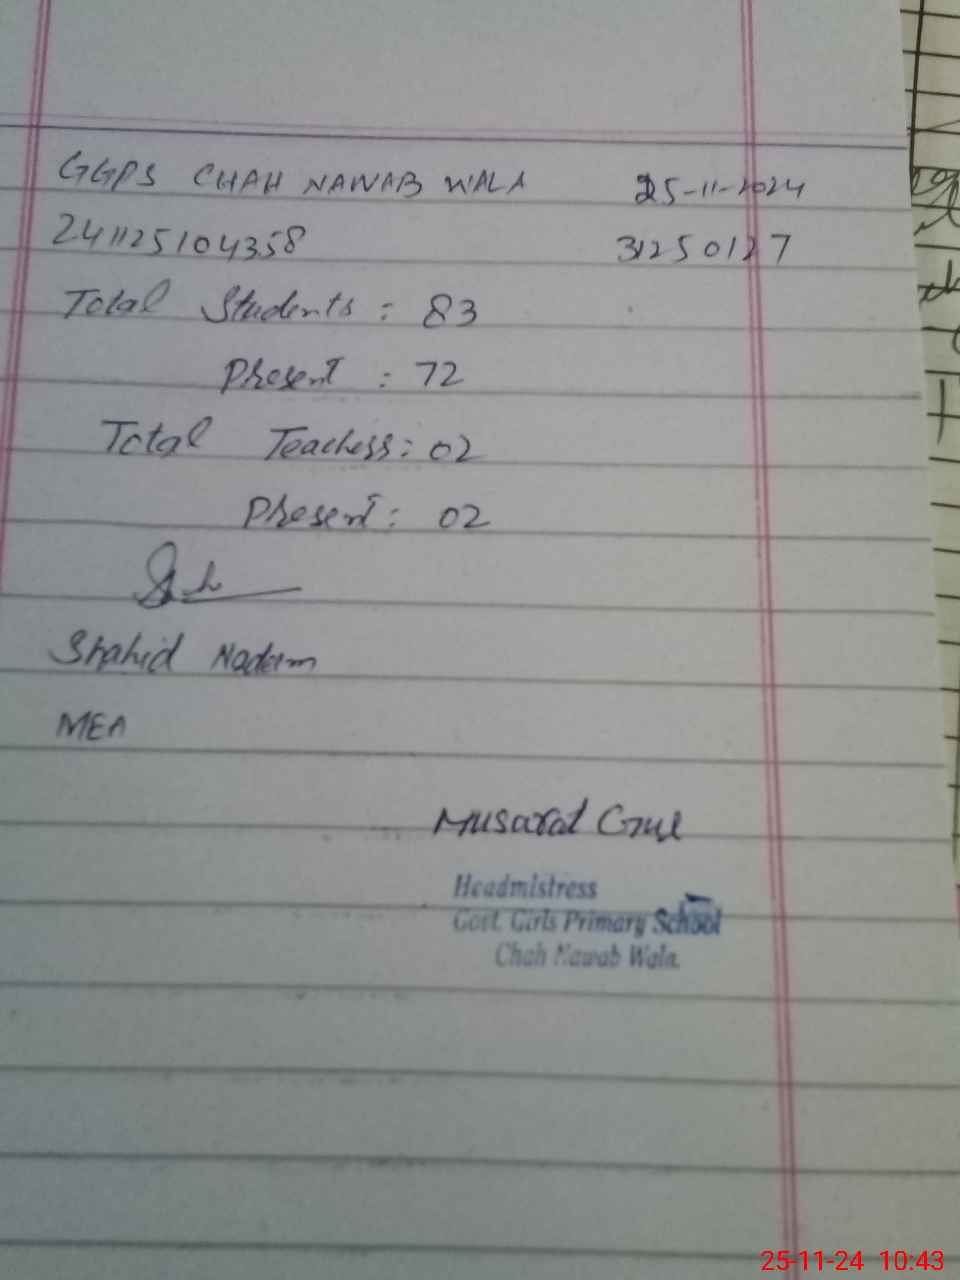 GGPS CHAH NAWAB WALA 25-11-2024
241125104358 31250127
Total Students : 83
Present : 72
Total Teachers : 02
Present : 02
Shahid Nadeem
MEA
Musarat Gul
Headmistress
Govt. Girls Primary School
Chah Nawab Wala.
25-11-24 10:43